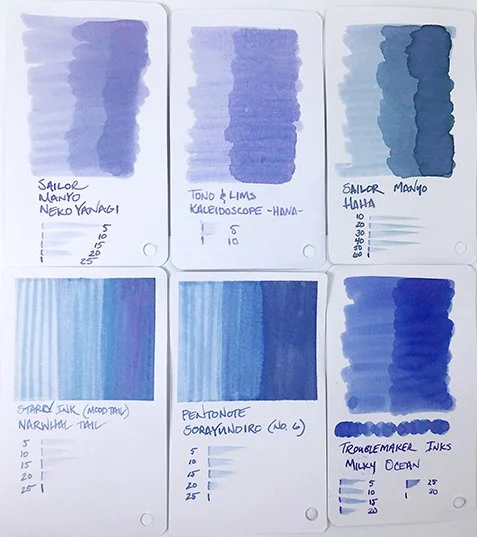 SAILOR
MANYO
NEKOYANAGI
5
10
15
20
25
TONO & LIMS
KALEIDOSCOPE -HANA-
5
10
SAILOR MANYO
HAHA
10
20
30
40
50
60
STARRY INK (MOOD TAIL)
NARWHAL TAIL
5
10
15
20
25
PENTONOTE
SORAYUNDIRO (No. 6)
5
10
15
20
25
TROUBLEMAKER INKS
MILKY OCEAN
5 25
10 30
15
20